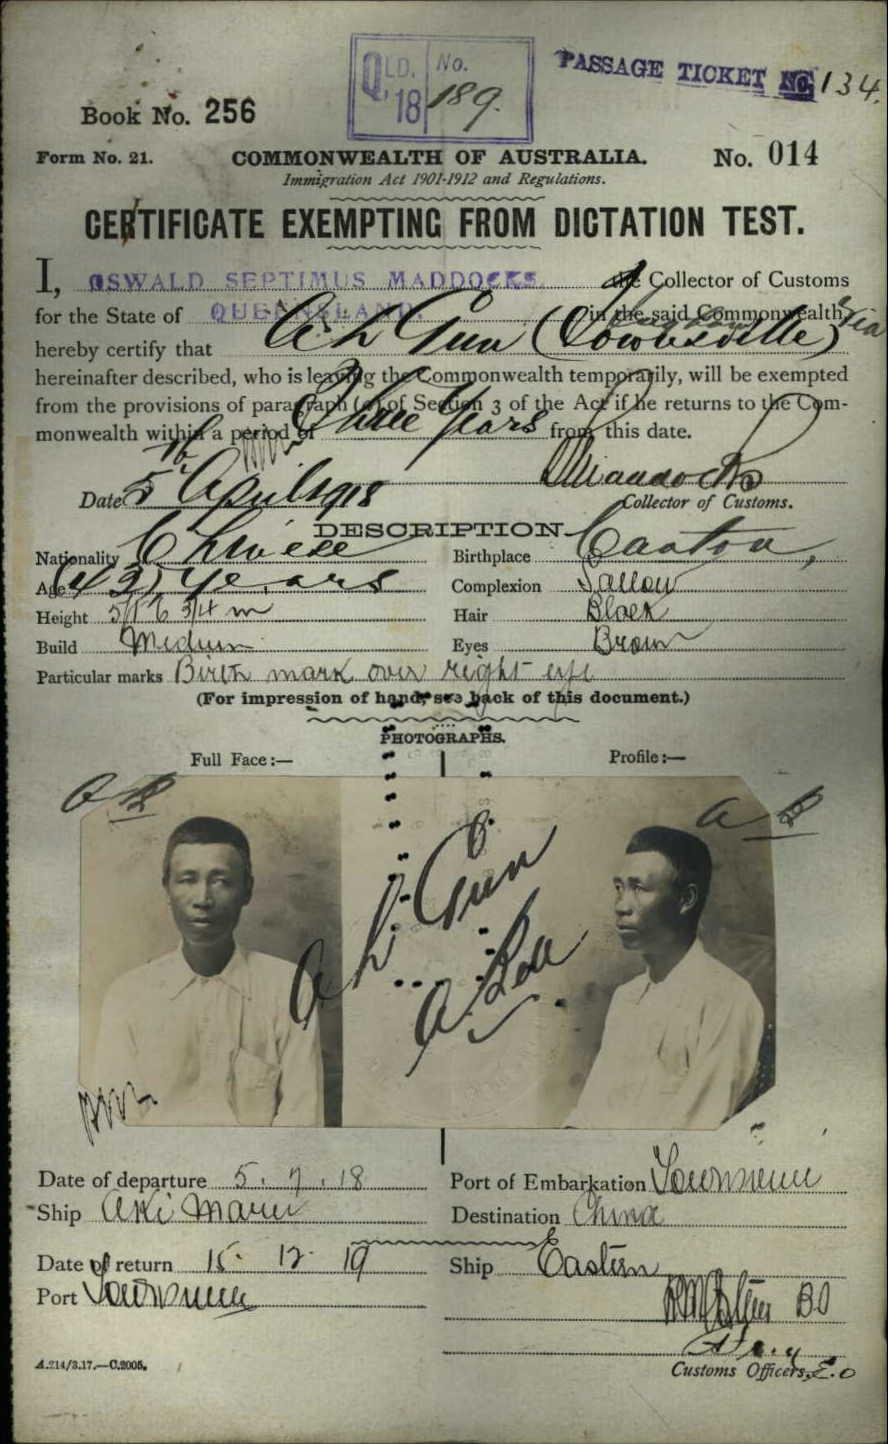 QLD. No.
'18 189.
PASSAGE TICKET No. 134.
Book No. 256
Form No. 21.
COMMONWEALTH OF AUSTRALIA.
No. 014
Immigration Act 1901-1912 and Regulations.
CERTIFICATE EXEMPTING FROM DICTATION TEST.
I, OSWALD SEPTIMUS MADDOCKS the Collector of Customs
for the State of QUEENSLAND. in the said Commonwealth
hereby certify that Ah Gun (Townsville)
hereinafter described, who is leaving the Commonwealth temporarily, will be exempted
from the provisions of paragraph (a) of Section 3 of the Act if he returns to the Com-
monwealth within a period of Three Years from this date.
Date 5th April 1918
Collector of Customs.
DESCRIPTION
Nationality Chinese Birthplace Canton,
Age (42) years Complexion Sallow
Height Hair Black
Build Medium Eyes Brown
Particular marks Birth mark over right eye
(For impression of hand, see back of this document.)
PHOTOGRAPHS.
Full Face:— Profile:—
Ah Gun
Date of departure 5.7.18 Port of Embarkation Townsville
Ship Aki Maru Destination China
Date of return 15. 12. 19 Ship Eastern
Port Townsville
Customs Officers.
A.214/3.17.—C.2005.